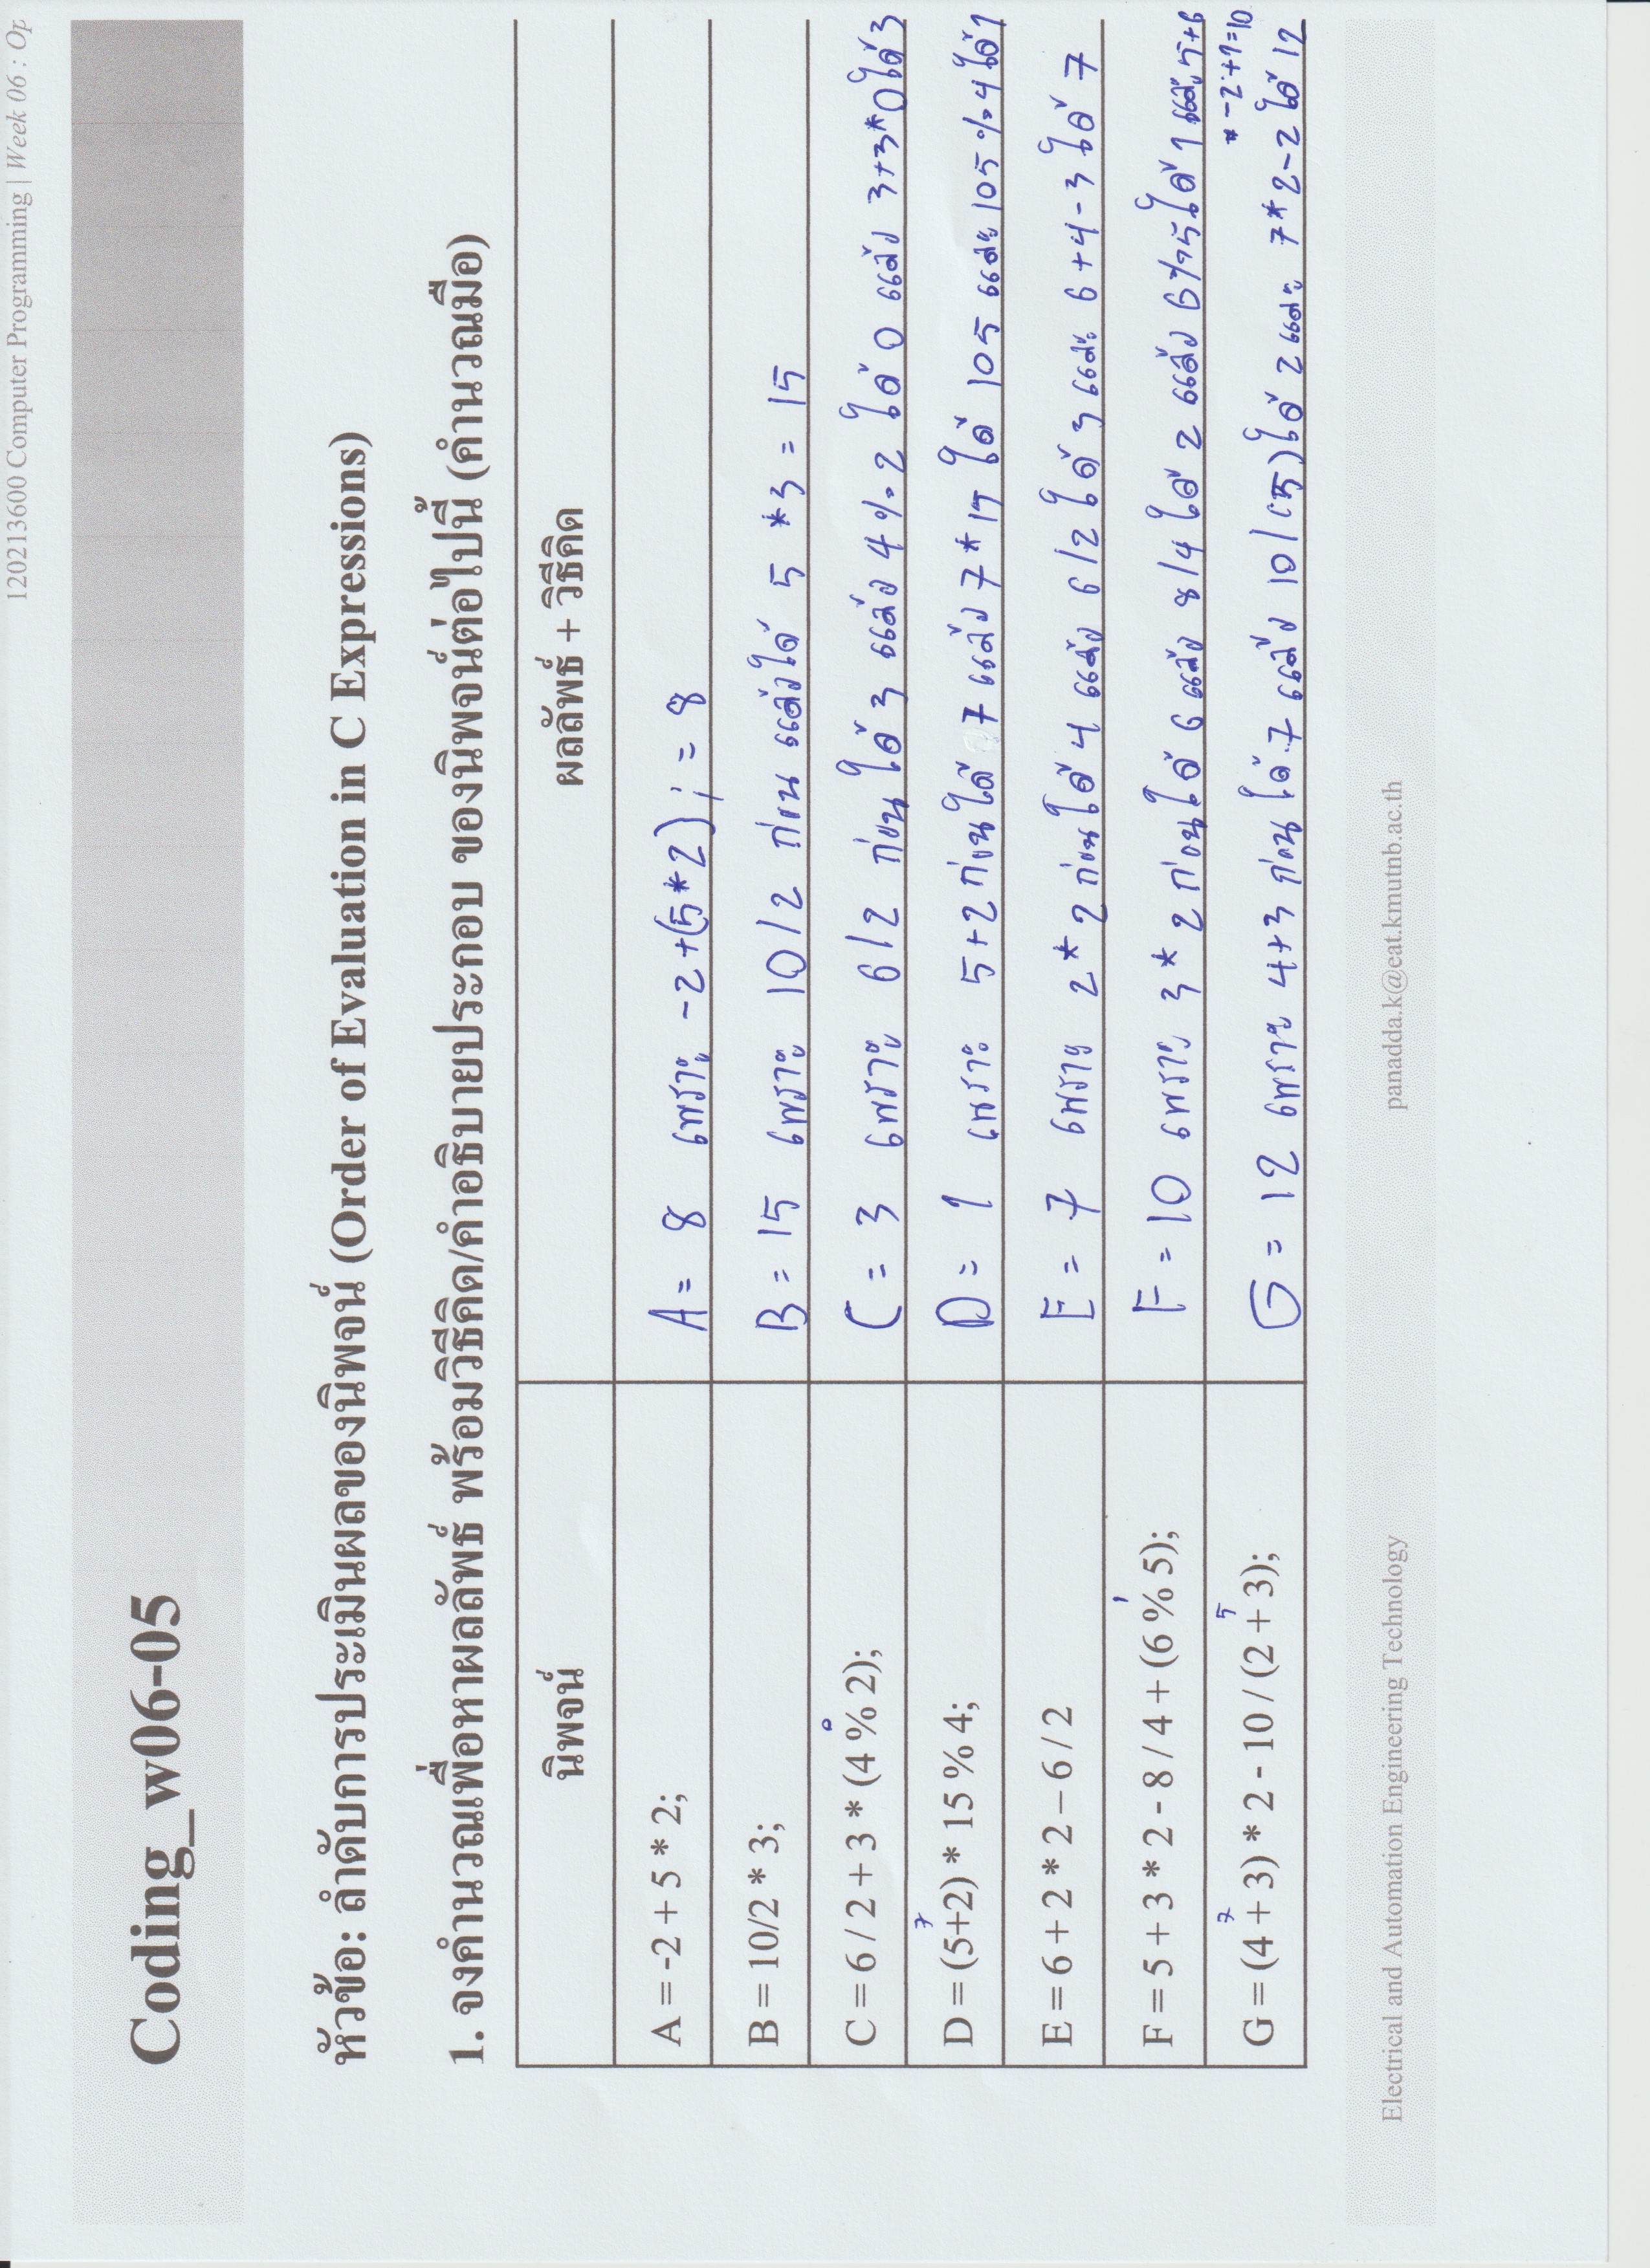 120213600 Computer Programming | Week 06 : Op
Coding_w06-05
หัวข้อ: ลำดับการประเมินผลของนิพจน์ (Order of Evaluation in C Expressions)
1. จงคำนวณเพื่อหาผลลัพธ์ พร้อมวิธีคิด/คำอธิบายประกอบ ของนิพจน์ต่อไปนี้ (คำนวณมือ)
นิพจน์ ผลลัพธ์ + วิธีคิด
A = -2 + 5 * 2; A = 8 เพราะ -2+(5*2); = 8
B = 10/2 * 3; B = 15 เพราะ 10/2 ก่อน แล้วได้ 5 *3 = 15
0
C = 6 / 2 + 3 * (4 % 2); C = 3 เพราะ 6/2 ก่อน ได้ 3 แล้ว 4 % 2 ได้ 0 แล้ว 3+3*0 ได้ 3
7
D = (5+2) * 15 % 4; D = 1 เพราะ 5+2 ก่อน ได้ 7 แล้ว 7*15 ได้ 105 และ 105 % 4 ได้ 1
E = 6 + 2 * 2 – 6 / 2 E = 7 เพราะ 2*2 ก่อน ได้ 4 แล้ว 6/2 ได้ 3 และ 6+4-3 ได้ 7
1
F = 5 + 3 * 2 - 8 / 4 + (6 % 5); F = 10 เพราะ 3*2 ก่อน ได้ 6 แล้ว 8/4 ได้ 2 แล้ว 6%5 ได้ 1 และ 5+6
-2+1=10
7 5
G = (4 + 3) * 2 - 10 / (2 + 3); G = 12 เพราะ 4+3 ก่อน ได้ 7 แล้ว 10/(5) ได้ 2 และ 7*2-2 ได้ 12
Electrical and Automation Engineering Technology panadda.k@eat.kmutnb.ac.th